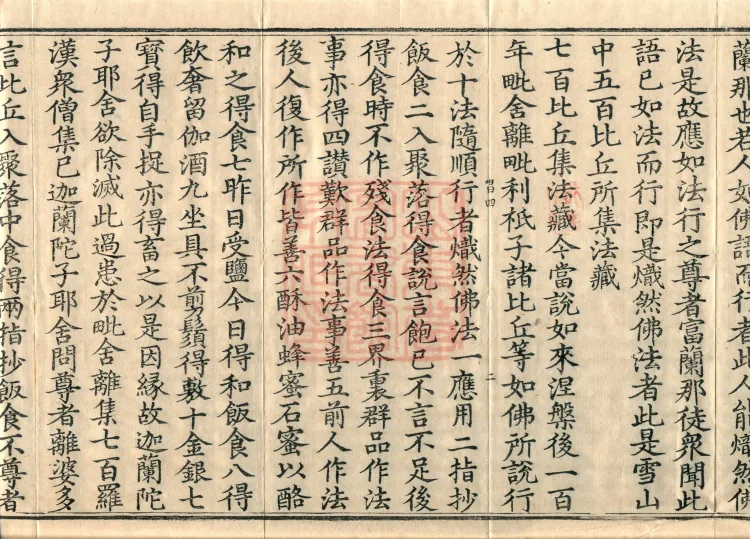 蘭那也若人如佛語而行者此人能熾然佛
法是故應如法行之尊者富蘭那徒衆聞此
語已如法而行即是熾然佛法者此是雪山
中五百比丘所集法藏
七百比丘集法藏今當說如來涅槃後一百
年毗舍離毗利祇子諸比丘等如佛所說行
於十法隨順行者熾然佛法一應用二指抄
飯食二入聚落得食說言飽已不言不足後
得食時不作殘食法得食三界裏群品作法
事亦得四讚歎群品作法事善五前人作法
後人復作所作皆善六酥油蜂蜜石蜜以酪
和之得食七昨日受鹽今日得和飯食八得
飲奢留伽酒九坐具不剪鬚得敷十金銀七
寶得自手捉亦得畜之以是因緣故迦蘭陀
子耶舍欲除滅此過患於毗舍離集七百羅
漢衆僧集已迦蘭陀子耶舍問尊者離婆多
言比丘入聚落中食得兩指抄飯食不尊者